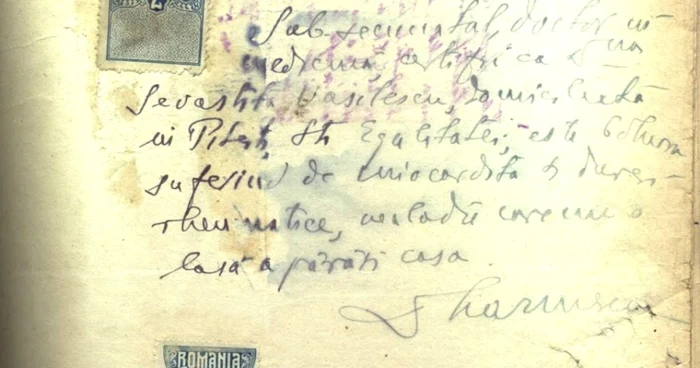 2
Subsemnatul, doctor in
medicină, certific că D-na
Sevastița Vasilescu, domiciliată
in Pitești, Str Egalitatei, este bolnavă
suferind de miocardită și dureri
rheumatice, maladii care nu o
lasă a părăsi casa
ROMANIA